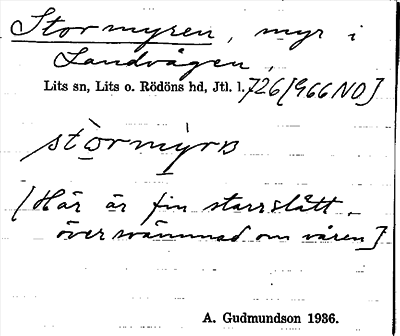 Stormyren, myr i
Sandvågen,
Lits sn, Lits o. Rödöns hd, Jtl. l. 726 [966 NO]
[Här är fin starrslått –
översvämmad om våren]
A. Gudmundson 1936.